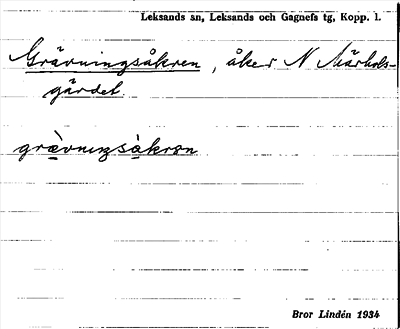 Leksands sn, Leksands och Gagnefs tg, Kopp. l.
Grävningsåkren, åker N
gärdet.
grävningsåkrən
Bror Lindén 1934